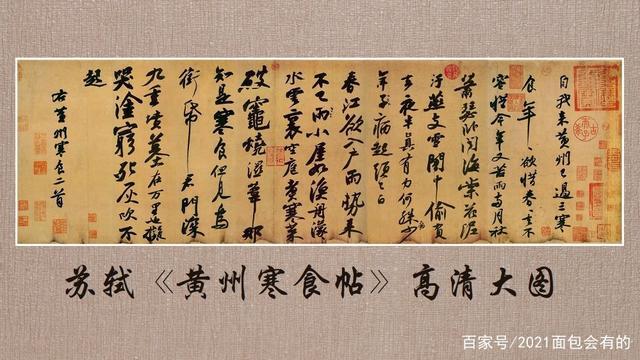 自我來黃州已過三寒
食年年欲惜春春去不
容惜今年又苦雨兩月秋
蕭瑟臥聞海棠花泥
汙燕支雪闇中偷負
去夜半真有力何殊少
年子病起頭已白
春江欲入戶雨勢來
不已雨小屋如漁舟濛濛
水雲裏空庖煮寒菜
破竈燒濕葦那
知是寒食但見烏
銜帋君門深
九重墳墓在万里也擬
哭塗窮死灰吹不
起
右黃州寒食二首
苏轼《黄州寒食帖》高清大图
百家号/2021面包会有的